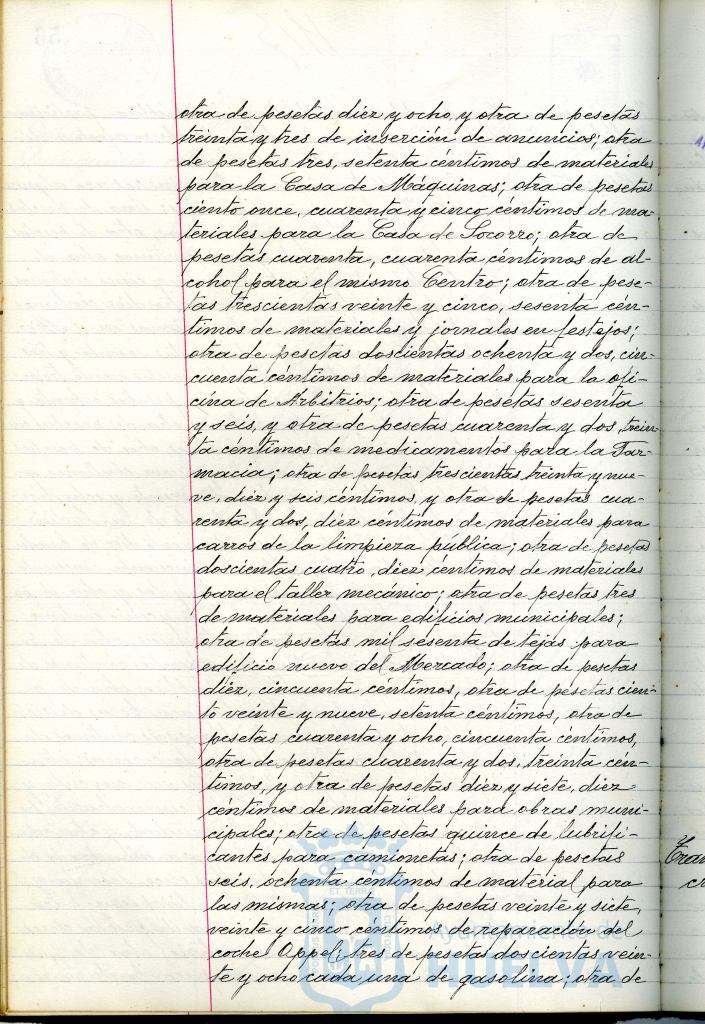 otra de pesetas diez y ocho, y otra de pesetas
treinta y tres de inserción de anuncios; otra
de pesetas tres, setenta céntimos de materiales
para la Casa de Máquinas; otra de pesetas
ciento once, cuarenta y cinco céntimos de ma-
teriales para la Casa de Socorro; otra de
pesetas cuarenta, cuarenta céntimos de al-
cohol para el mismo Centro; otra de pese-
tas trescientas veinte y cinco, sesenta cén-
timos de materiales y jornales en festejos;
otra de pesetas doscientas ochenta y dos, cin-
cuenta céntimos de materiales para la ofi-
cina de Arbitrios; otra de pesetas sesenta
y seis, y otra de pesetas cuarenta y dos, trein-
ta céntimos de medicamentos para la Far-
macia; otra de pesetas trescientas treinta y nue-
ve, diez y seis céntimos, y otra de pesetas cua-
renta y dos, diez céntimos de materiales para
carros de la limpieza pública; otra de pesetas
doscientas cuatro, diez céntimos de materiales
para el taller mecánico; otra de pesetas tres
de materiales para edificios municipales;
otra de pesetas mil sesenta de tejas para
edificio nuevo del Mercado; otra de pesetas
diez, cincuenta céntimos, otra de pesetas cien-
to veinte y nueve, setenta céntimos, otra de
pesetas cuarenta y ocho, cincuenta céntimos,
otra de pesetas cuarenta y dos, treinta cén-
timos, y otra de pesetas diez y siete, diez
céntimos de materiales para obras muni-
cipales; otra de pesetas quince de lubrifi-
cantes para camionetas; otra de pesetas
seis, ochenta céntimos de material para
las mismas; otra de pesetas veinte y siete,
veinte y cinco céntimos de reparación del
coche Oppel; tres de pesetas doscientas vein-
te y ocho cada una de gasolina; otra de
Ayuntamiento de
HUELVA